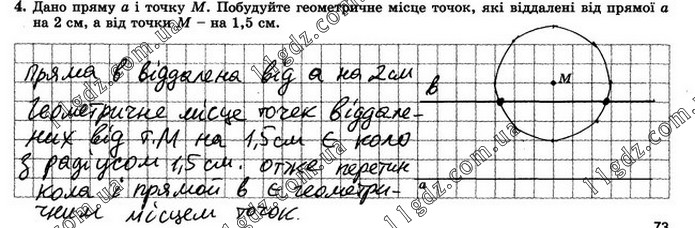 4. Дано пряму a і точку M. Побудуйте геометричне місце точок, які віддалені від прямої a
на 2 см, а від точки M – на 1,5 см.
Пряма в віддалена від а на 2см
Геометричне місце точек віддале-
них від т.М на 1,5см є коло
з радіусом 1,5см. отже перетин
кола і прямой в є геометри-
чним місцем точок.
в
M
a
11gdz.com.ua
73